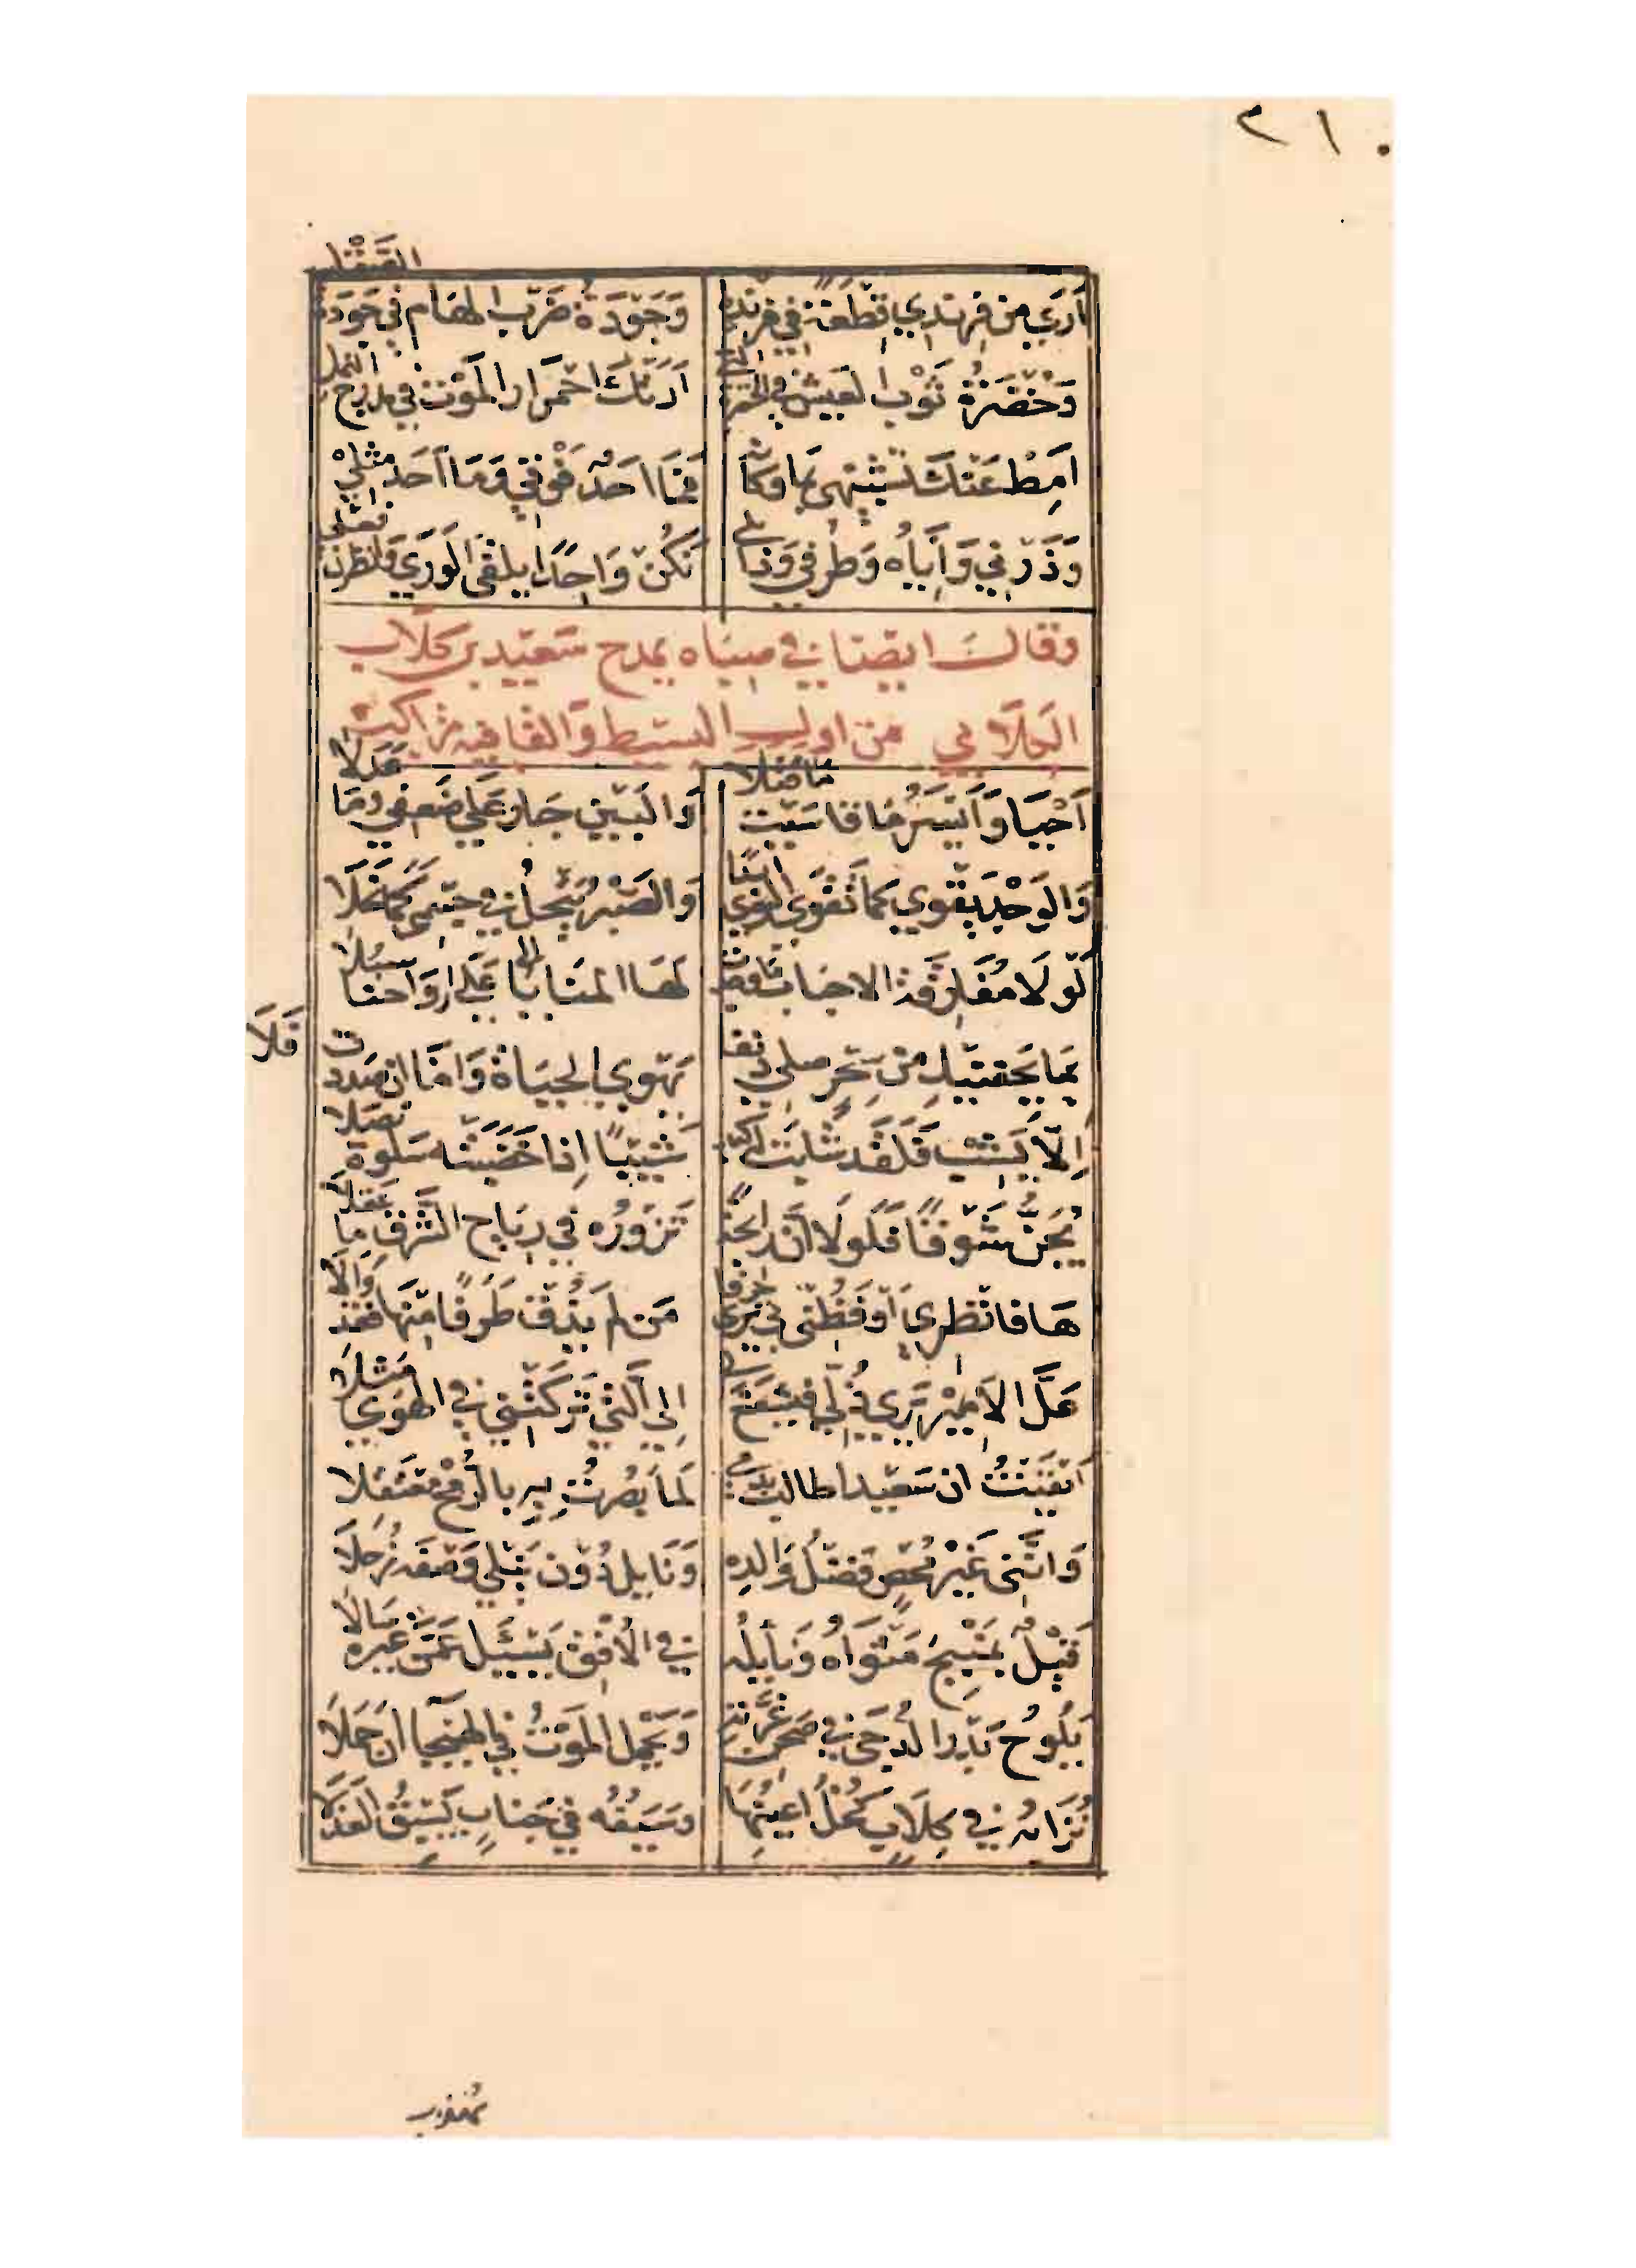 ٢١٠
أرى من فرندي قطعة في فرنده وَجَوْدَةُ ضَرْبِ الهَامِ في جَوْدَة الصَّقْل
وَخُضْرَةُ ثَوْبِ العَيشِ في الخُضرة التي أَرَتْكَ احْمِرَارَ المَوْتِ في مدرج النمل
اَمِطْ عَنْكَ تَشْبِيْهِي بِمَا وَكَأنّه فَمَا اَحَدٌ فَوْقِي وَمَا اَحَدٌ مِثْلِي
وَذَرْنِي وَاِيَّاهُ وَطِرْفِي وَذَابلي نَكُنْ وَاحِدًا يلقَى الوَرَى وَانظُرَنْ فعلي
وقال ايضا في صباه يمدح سَعيد بن كلاب
الكلابي من اول البسيط والقافية متراكب
اَحْيَا وَاَيْسَرُ مَا قاسَيْت مَا قتلا وَالبَيْن جَارَ عَلَى ضَعفي وَمَا عَدَلا
وَالوَجْد يَقْوَى كَمَا تَقْوَى النوى ابدًا وَالصَّبْرُ يَنْحَل في جسمي كما نَحَلا
لَوْلَا مُفَارَقَة الاحباب ما وجدت لَهَا المنايا الى اَرْوَاحنا سُبُلا
بما بجفنيكِ من سِحْرٍ صلي دنفا يَهْوَى الحيَاة وَاَمَّا ان صَدَدت فَلَا
اِلّا يَشِبْ فَلَقَد شَابَت له كبد شَيْبًا اِذا خَضَبَتْه سَلْوة نَصَلا
يُجَنُّ شَوْقًا فَلَولَا اَنّ رائحة تَزُورُه في رياح الشَّرق ما عَقَلا
هَا فانظري اَوْ فَظُنّي بي تَرَى حُرَقا مَن لم يَذُق طَرَفًا مِنْهَا فَقَد وَاَلَا
عَلَّ الاَمِيْرَ يَرَى ذُلّي فيشفع لي اِلَى الَّتي تَرَكَتْني في الهَوَى مَثَلا
اَيْقَنْتُ ان سَعِيْدا طالب بدمي لَمَّا بَصُرْتُ بِهِ بالرُّمْح مُعْتَقِلا
وَاَنَّنِي غَيْر مُحْصٍ فَضْلَ وَالِدِه وَنَايِل دُوْنَ نَيْلي وَصْفَه زُحَلَا
قَيْلٌ بِمَنْبِجَ مَثْوَاهُ وَنَايِلُه في الاُفْقِ يَسْئَل عَمَّن غيره سَالا
يَلُوحُ بَدْر الدُّجَى في صَحن غُرَّته وَيَحْمِل المَوْتُ في الهَيجا ان حَمَلَا
تُرَابُه في كِلَابٍ كُحْلُ اَعْيُنِهَا وَسَيْفُه في جَنَابٍ يَسْبِقُ العَذَلا